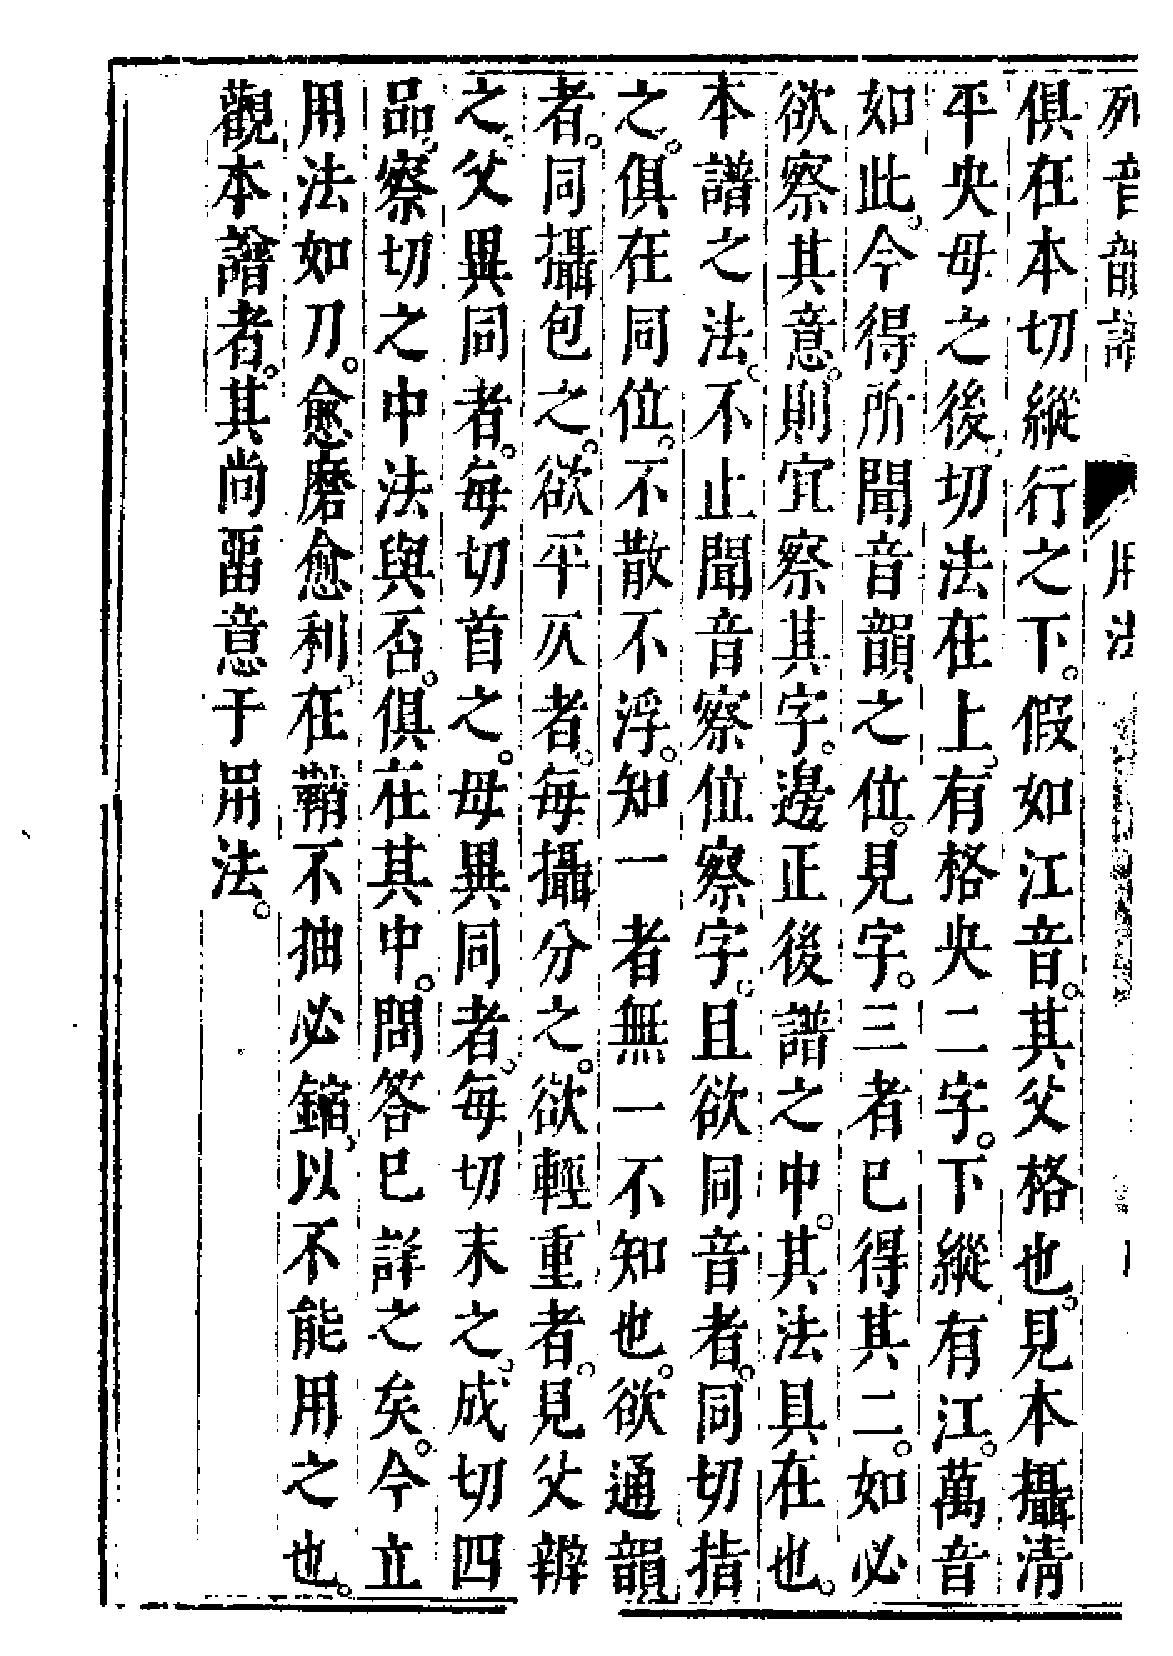 列音韻譜 用法
俱在本切縱行之下。假如江音。其父格也、見本攝清
平央母之後、切法在上、有格央二字。下縱有江。萬音
如此、今得所聞音韻之位。見字。三者已得其二。如必
欲察其意。則宜察其字。邊正後譜之中。其法具在也。
本譜之法、不止聞音察位察字。且欲同音者。同切指
之。俱在同位。不散不浮。知一者無一不知也。欲通韻
者。同攝包之。欲平仄者。每攝分之。欲輕重者。見父辦
之。父異同者。每切首之。母異同者、每切末之、成切四
品、察切之中法與否。俱在其中。問答已詳之矣。今立
用法如刀。愈磨愈利、在鞘不抽必鏥、以不能用之也。
觀本譜者。其尚畱意于用法。